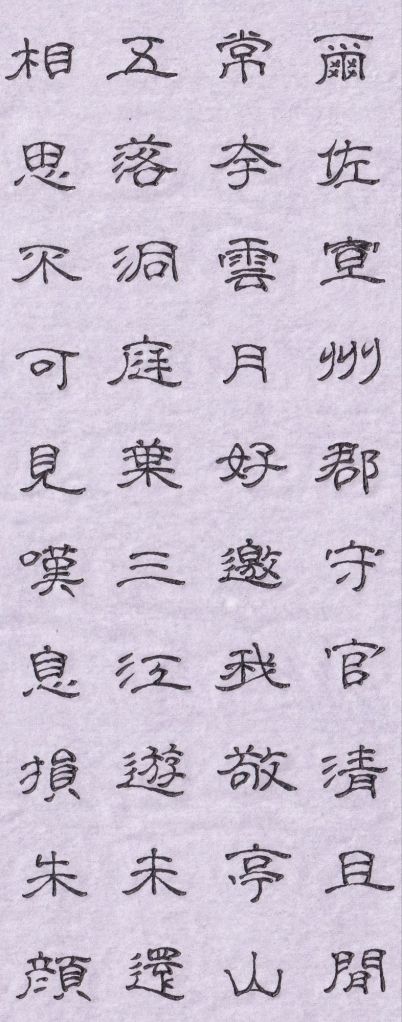 爾佐宣州郡守官清且閒
常夸雲月好邀我敬亭山
五落洞庭葉三江遊未還
相思不可見嘆息損朱顔